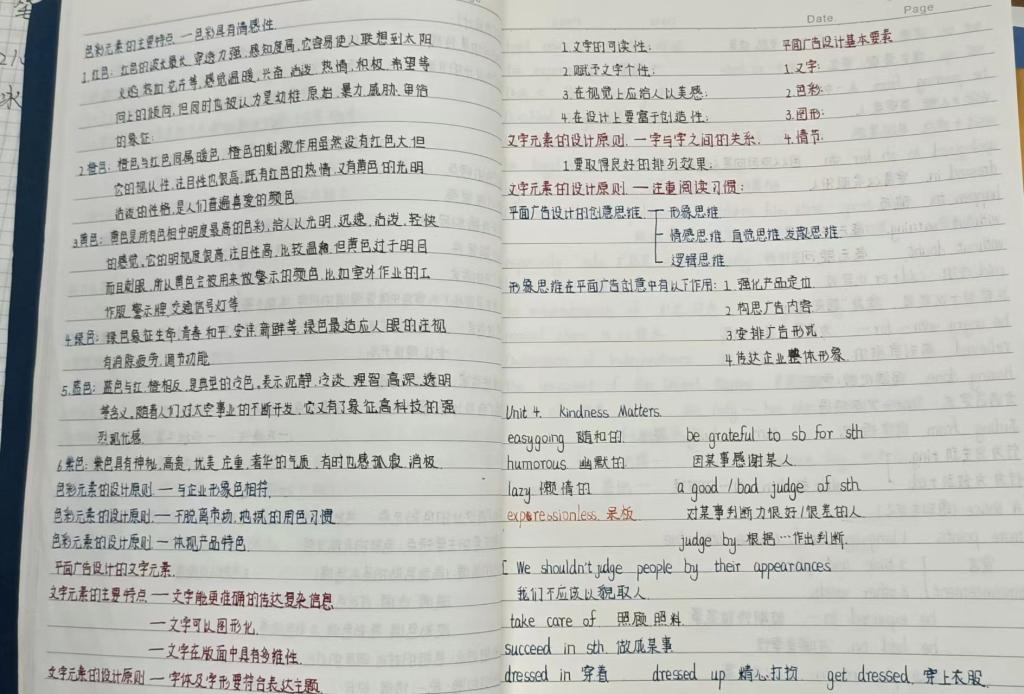 色彩元素的主要特点 — 色彩具有情感性
1.红色：红色的波长最大，穿透力强，感知度高，它容易使人联想到太阳
火焰、热血、花卉等，感觉温暖、兴奋、活泼、热情、积极、希望等
向上的倾向，但同时也被认为是幼稚、原始、暴力、威胁、卑俗
的象征；
2.橙色：橙色与红色同属暖色，橙色的刺激作用虽然没有红色大，但
它的视认性、注目性也很高，既有红色的热情，又有黄色的光明
活泼的性格，是人们普遍喜爱的颜色
3.黄色：黄色是所有色相中明度最高的色彩，给人以光明、迅速、活泼、轻快
的感觉，它的明视度很高，注目性高，比较温和，但黄色过于明目
而且刺眼，所以黄色会被用来做警示的颜色，比如室外作业的工
作服、警示牌、交通信号灯等
4.绿色：绿色象征生命、青春、和平、安详、新鲜等，绿色最适应人眼的注视
有消除疲劳、调节功能
5.蓝色：蓝色与红、橙相反，是典型的冷色，表示沉静、冷淡、理智、高深、透明
等含义，随着人们对太空事业的不断开发，它又有了象征高科技的强
烈现代感.
6.紫色：紫色具有神秘、高贵、优美、庄重、奢华的气质，有时也感孤寂、消极.
色彩元素的设计原则 — 与企业形象色相符.
色彩元素的设计原则 — 不脱离市场、地域的用色习惯
色彩元素的设计原则 — 体现产品特色.
平面广告设计的文字元素.
文字元素的主要特点 — 文字能更准确的传达复杂信息
— 文字可以图形化.
— 文字在版面中具有多维性.
文字元素的设计原则 — 字体及字形要符合表达主题
Date. Page
1.文字的可读性； 平面广告设计基本要素
2.赋予文字个性； 1.文字；
3.在视觉上应给人以美感； 2.色彩；
4.在设计上要富于创造性； 3.图形；
文字元素的设计原则 — 字与字之间的关系. 4.情节.
1.要取得良好的排列效果；
文字元素的设计原则 — 注重阅读习惯；
平面广告设计的创意思维 形象思维
情感思维、直觉思维、发散思维
逻辑思维
形象思维在平面广告创意中有以下作用：1 强化产品定位
2 构思广告内容
3.安排广告形式
4.传达企业整体形象
Unit 4. Kindness Matters.
easygoing 随和的 be grateful to sb for sth
humorous 幽默的 因某事感谢某人
lazy 懒惰的 a good / bad judge of sth
expressionless 呆板 对某事判断力很好/很差的人.
judge by 根据…作出判断.
[ We shouldn't judge people by their appearances
我们不应该以貌取人.
take care of 照顾 照料
succeed in sth. 做成某事
dressed in 穿着 dressed up 精心打扮 get dressed. 穿上衣服.